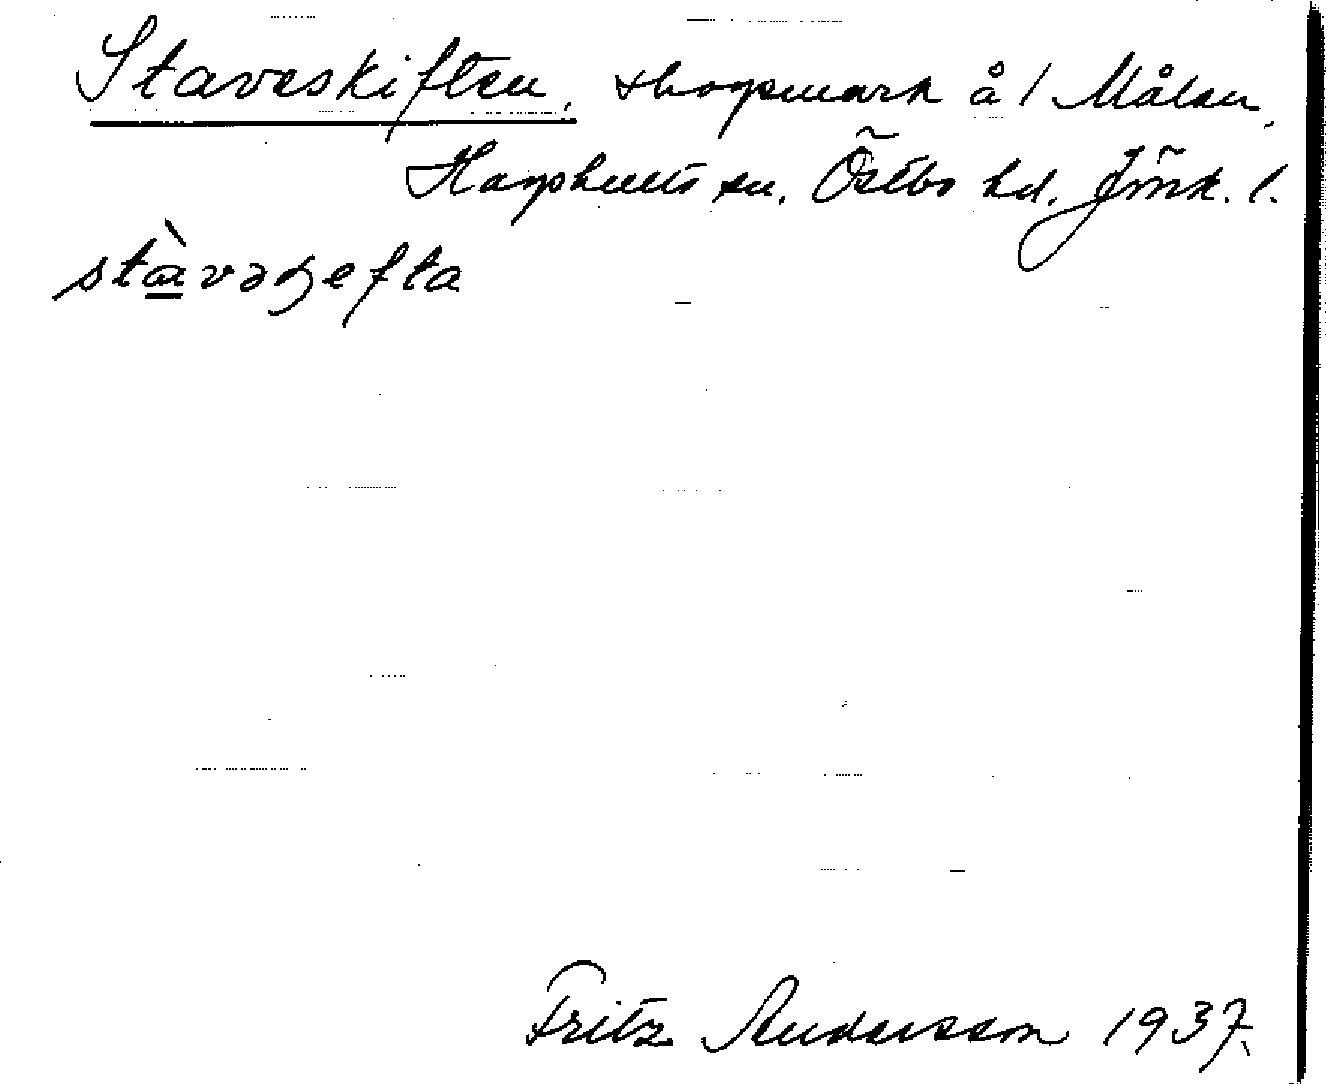 Staveskiften, skogsmark å 1 Målen,
Hagshults sn. Östbo hd. Jönk. l.
stàvəʒefta
Fritz Andersson 1937.